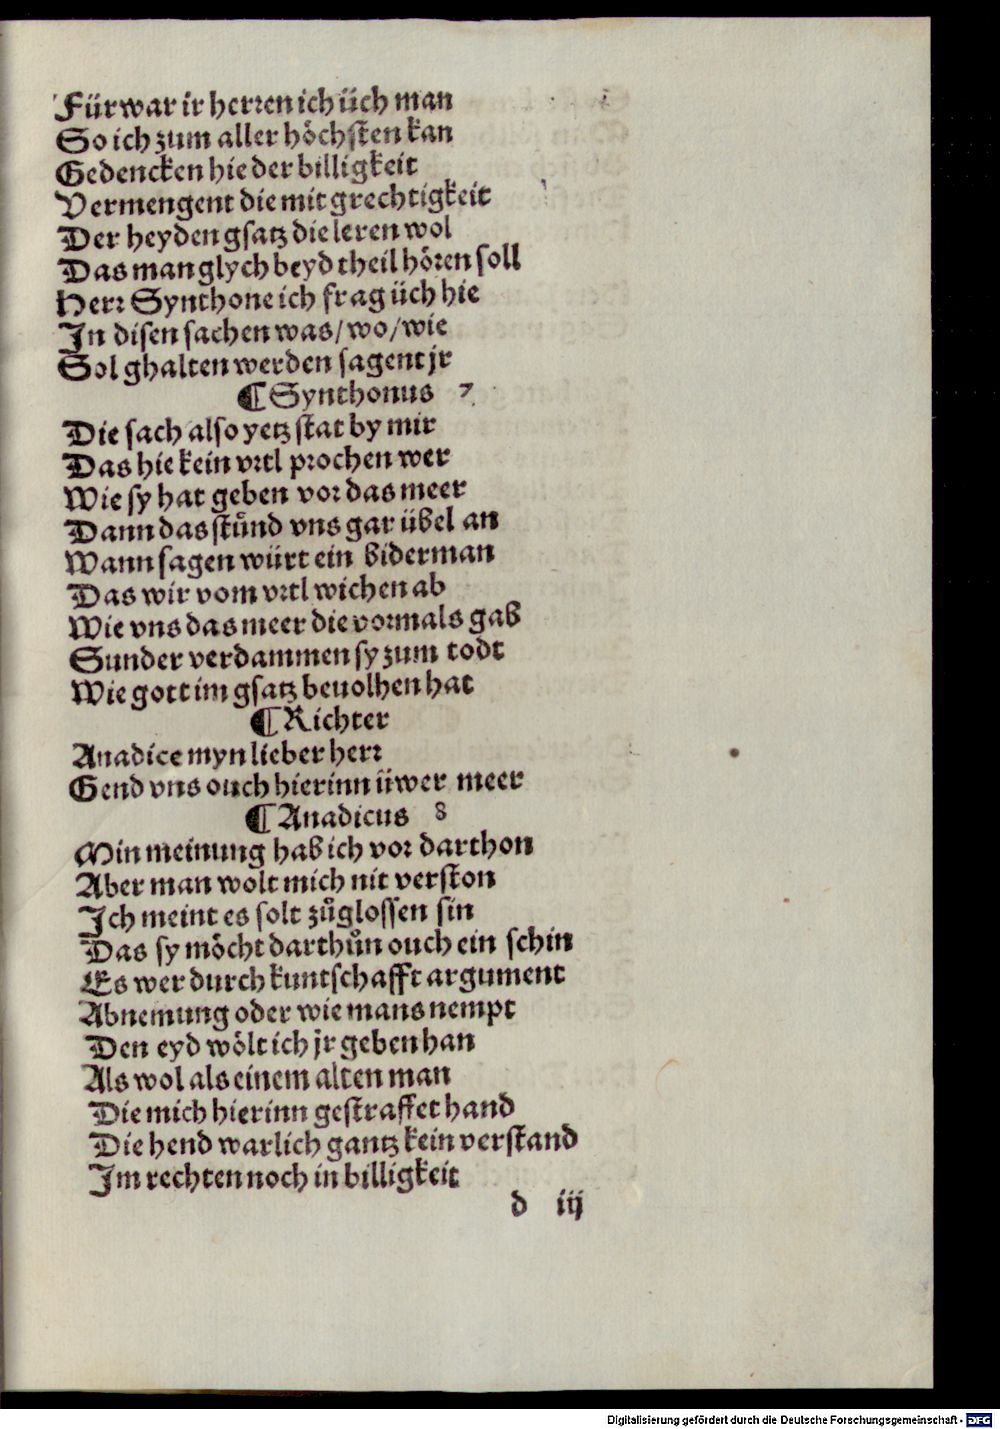 Fürwar ir herren ich üch man
So ich zum aller höchsten kan
Gedencken hie der billigkeit
Vermengent die mit grechtigkeit
Der heyden gsatz die leren wol
Das man glych beyd theil hören soll
Herr Synthone ich frag üch hie
In disen sachen was/wo/wie
Sol ghalten werden sagent jr
¶ Synthonus 7
Die sach also yetz stat by mir
Das hie kein vrtl prochen wer
Wie sy hat geben vor das meer
Dann das stůnd vns gar übel an
Wann sagen würt ein biderman
Das wir vom vrtl wichen ab
Wie vns das meer die vormals gab
Sunder verdammen sy zum todt
Wie gott im gsatz beuolhen hat
¶ Richter
Anadice myn lieber herr
Gend vns ouch hierinn üwer meer
¶ Anadicus 8
Min meinung hab ich vor darthon
Aber man wolt mich nit verston
Ich meint es solt zůglossen sin
Das sy möcht darthůn ouch ein schin
Es wer durch kuntschafft argument
Abnemung oder wie mans nempt
Den eyd wölt ich jr geben han
Als wol als einem alten man
Die mich hierinn gestraffet hand
Die hend warlich gantz kein verstand
Im rechten noch in billigkeit
d iij
Digitalisierung gefördert durch die Deutsche Forschungsgemeinschaft - DFG